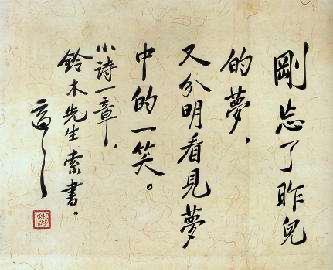 剛忘了昨兒
的夢，
又分明看見夢
中的一笑。
小詩一章，
鈴木先生索書。
適之